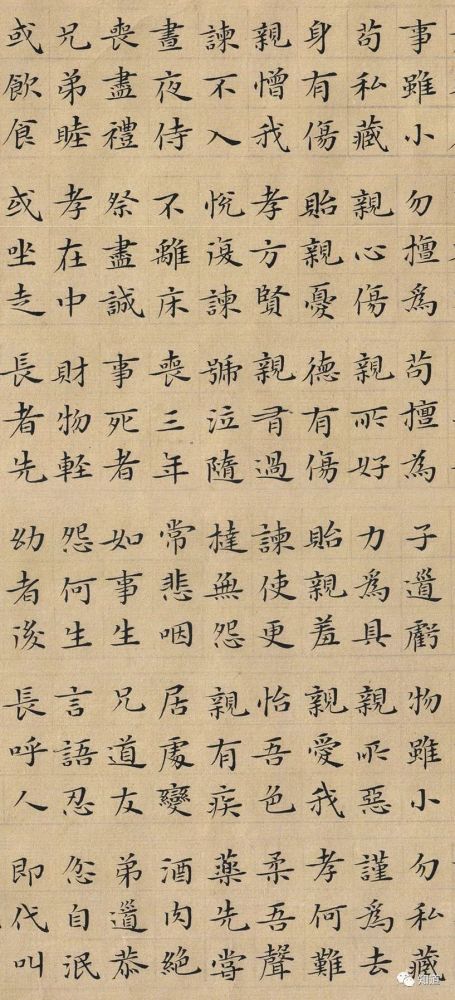 事雖小勿擅爲苟擅為子道虧物雖小勿私藏
苟私藏親心傷親所好力為具親所惡謹為去
身有傷貽親憂德有傷貽親羞親愛我孝何難
親憎我孝方賢親有過諫使更怡吾色柔吾聲
諫不入悅復諫號泣隨撻無怨親有疾藥先嘗
晝夜侍不離床喪三年常悲咽居處變酒肉絕
喪盡禮祭盡誠事死者如事生兄道友弟道恭
兄弟睦孝在中財物輕怨何生言語忍忿自泯
或飲食或坐走長者先幼者後長呼人即代叫